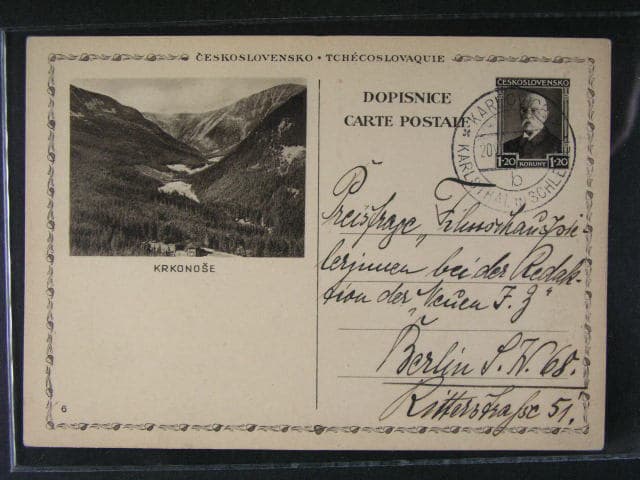 ČESKOSLOVENSKO • TCHÉCOSLOVAQUIE
DOPISNICE
CARTE POSTALE
ČESKOSLOVENSKO
1·20 KORUNY 1·20
KARLSTHAL in SCHLES
20
b
KRKONOŠE
Preisfrage „Filmschauspie
lerinnen bei der Redak-
tion der „Neuen I. Z“
Berlin S.W. 68.
Ritterstraße 51.
6